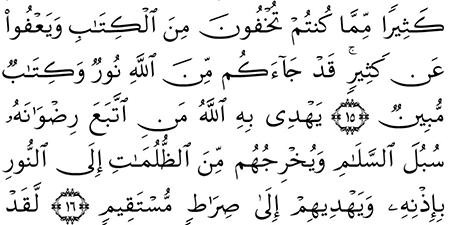 كَثِيرًا مِّمَّا كُنتُمْ تُخْفُونَ مِنَ ٱلْكِتَٰبِ وَيَعْفُوا۟
عَن كَثِيرٍ ۚ قَدْ جَآءَكُم مِّنَ ٱللَّهِ نُورٌ وَكِتَٰبٌ
مُّبِينٌ ١٥ يَهْدِى بِهِ ٱللَّهُ مَنِ ٱتَّبَعَ رِضْوَٰنَهُۥ
سُبُلَ ٱلسَّلَٰمِ وَيُخْرِجُهُم مِّنَ ٱلظُّلُمَٰتِ إِلَى ٱلنُّورِ
بِإِذْنِهِۦ وَيَهْدِيهِمْ إِلَىٰ صِرَٰطٍ مُّسْتَقِيمٍ ١٦ لَّقَدْ